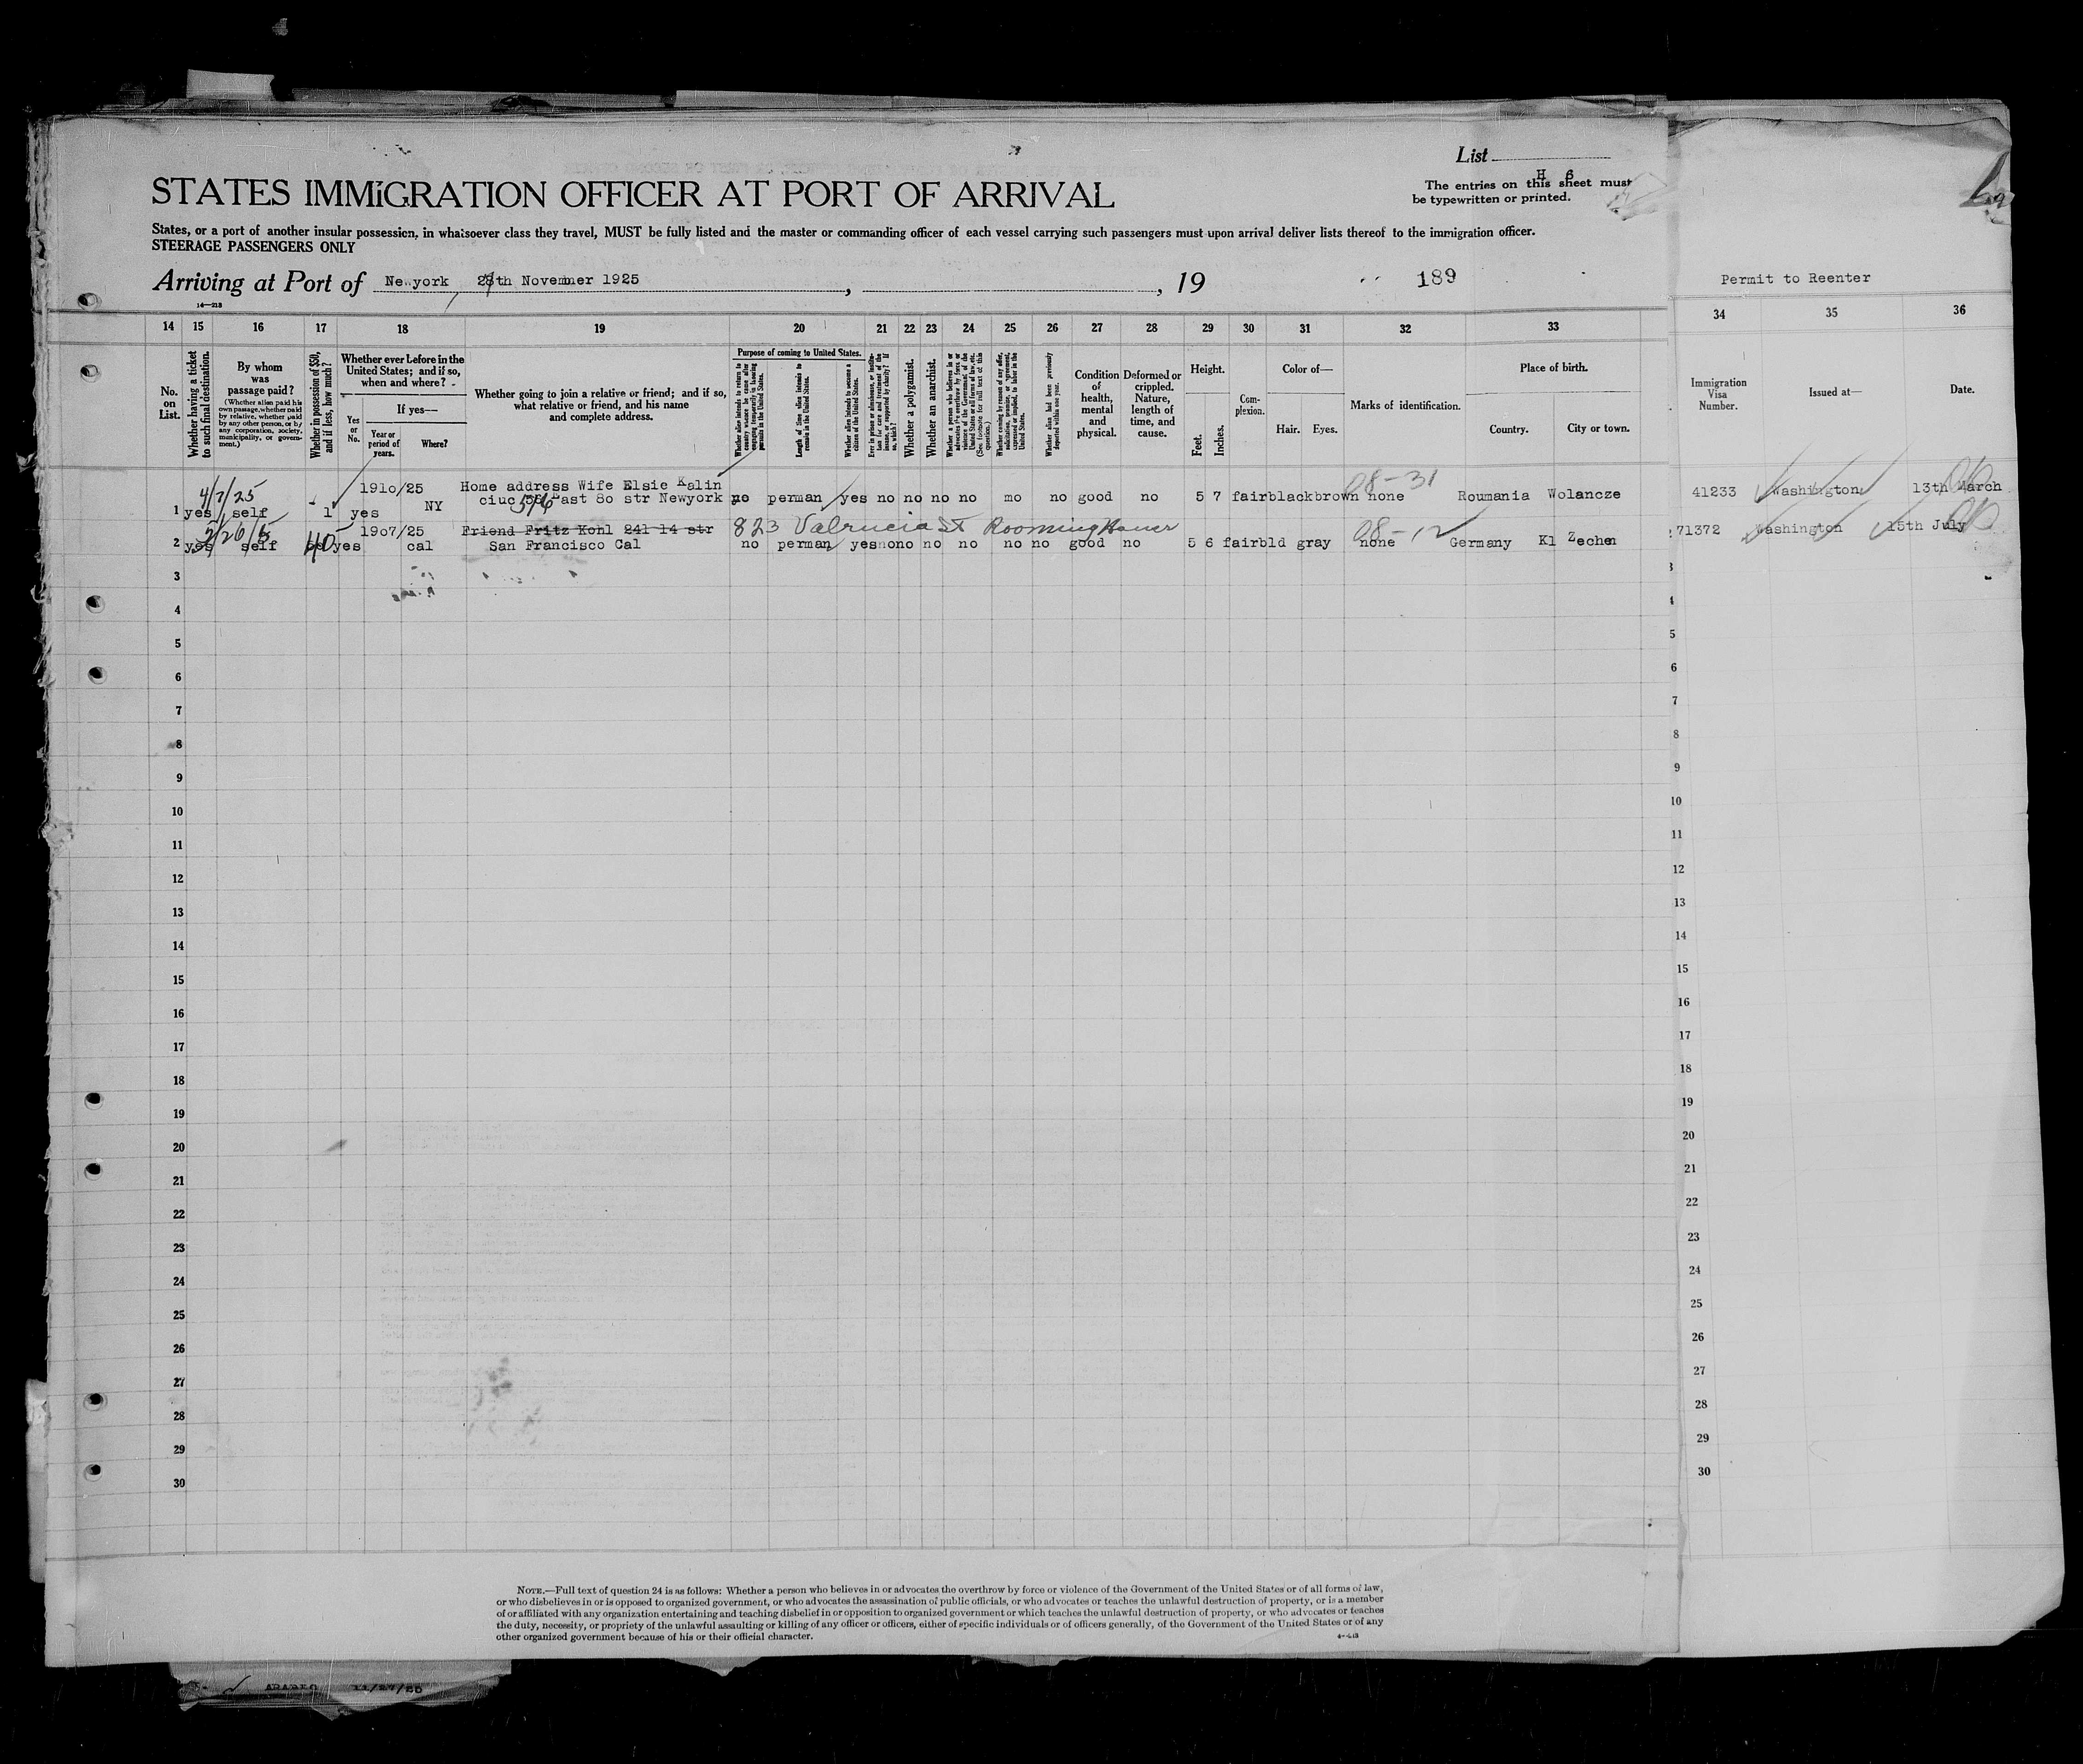 List
H 6
The entries on this sheet must
be typewritten or printed.
STATES IMMIGRATION OFFICER AT PORT OF ARRIVAL
States, or a port of another insular possession, in whatsoever class they travel, MUST be fully listed and the master or commanding officer of each vessel carrying such passengers must upon arrival deliver lists thereof to the immigration officer.
STEERAGE PASSENGERS ONLY
Arriving at Port of Newyork 28th November 1925 , , 19 189
14—213
Permit to Reenter
14 15 16 17 18 19 20 21 22 23 24 25 26 27 28 29 30 31 32 33 34 35 36
No. on List.
Whether having a ticket to such final destination.
By whom was passage paid?
(Whether alien paid his own passage, whether paid by relative, whether paid by any other person, or by any corporation, society, municipality, or government.)
Whether in possession of $50, and if less, how much?
Whether ever before in the United States; and if so, when and where?
If yes—
Yes or No.
Year or period of years.
Where?
Whether going to join a relative or friend; and if so, what relative or friend, and his name and complete address.
Purpose of coming to United States.
Whether alien intends to return to country whence he came after engaging temporarily in laboring pursuits in the United States.
Length of time alien intends to remain in the United States.
Whether alien intends to become a citizen of the United States.
Ever in prison or almshouse, or institution for care and treatment of the insane, or supported by charity? If so, which?
Whether a polygamist.
Whether an anarchist.
Whether alien had been previously deported within one year.
Condition of health, mental and physical.
Deformed or crippled. Nature, length of time, and cause.
Height.
Feet.
Inches.
Complexion.
Color of—
Hair.
Eyes.
Marks of identification.
Place of birth.
Country.
City or town.
Immigration Visa Number.
Issued at—
Date.
4/7/25 1910/25 Home address Wife Elsie Kalin 08-31
1 yes self 1 yes NY ciuc 516 East 80 str Newyork no perman yes no no no no mo no good no 5 7 fair black brown none Roumania Wolancze 41233 Washington 13th March
1907/25 Friend Fritz Kohl 241 14 str 823 Valencia St Rooming House 08-12
2 yes self 40 yes cal San Francisco Cal no perman yes no no no no no no good no 5 6 fair bld gray none Germany Kl Zechen 71372 Washington 15th July
3 3
4 4
5 5
6 6
7 7
8 8
9 9
10 10
11 11
12 12
13 13
14 14
15 15
16 16
17 17
18 18
19 19
20 20
21 21
22 22
23 23
24 24
25 25
26 26
27 27
28 28
29 29
30 30
NOTE.—Full text of question 24 is as follows: Whether a person who believes in or advocates the overthrow by force or violence of the Government of the United States or of all forms of law,
or who disbelieves in or is opposed to organized government, or who advocates the assassination of public officials, or who advocates or teaches the unlawful destruction of property, or is a member
of or affiliated with any organization entertaining and teaching disbelief in or opposition to organized government or which teaches the unlawful destruction of property, or who advocates or teaches
the duty, necessity, or propriety of the unlawful assaulting or killing of any officer or officers, either of specific individuals or of officers generally, of the Government of the United States or of any
other organized government because of his or their official character.
11/27/25